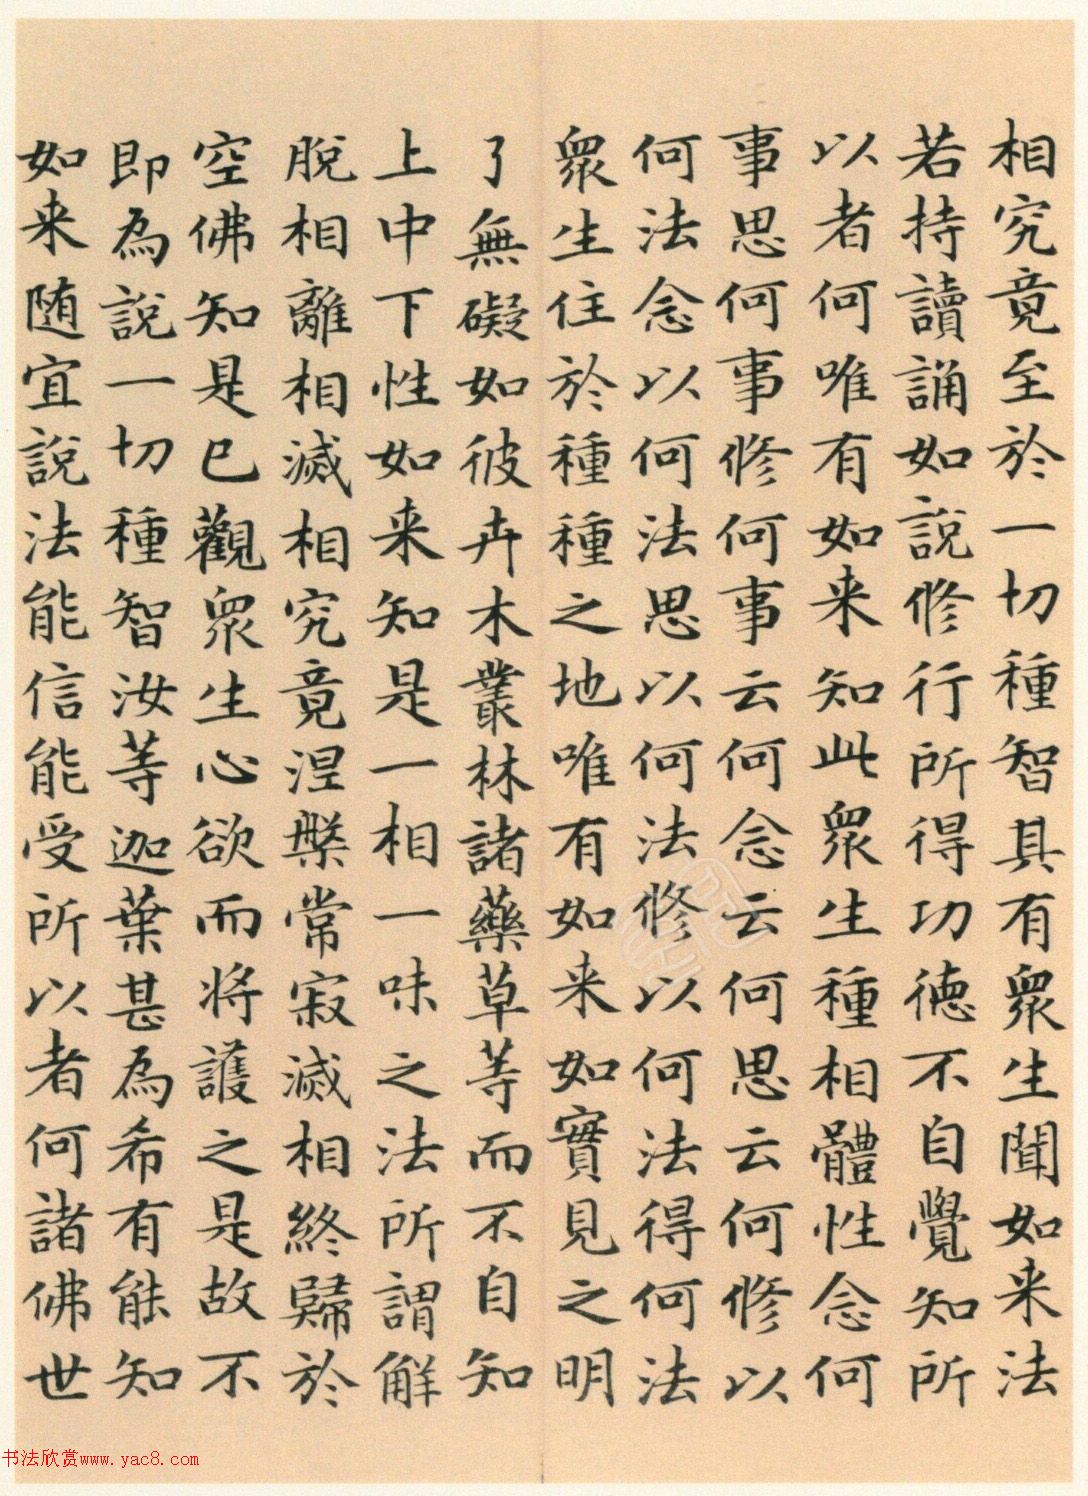 相究竟至於一切種智具有眾生聞如来法
若持讀誦如說修行所得功徳不自覺知所
以者何唯有如来知此眾生種相體性念何
事思何事修何事云何念云何思云何修以
何法念以何法思以何法修以何法得何法
眾生住於種種之地唯有如来如實見之明
了無礙如彼卉木叢林諸藥草等而不自知
上中下性如来知是一相一味之法所謂解
脫相離相滅相究竟涅槃常寂滅相終歸於
空佛知是已觀眾生心欲而將護之是故不
即為說一切種智汝等迦葉甚為希有能知
如来随宜說法能信能受所以者何諸佛世
书法欣赏www.yac8.com